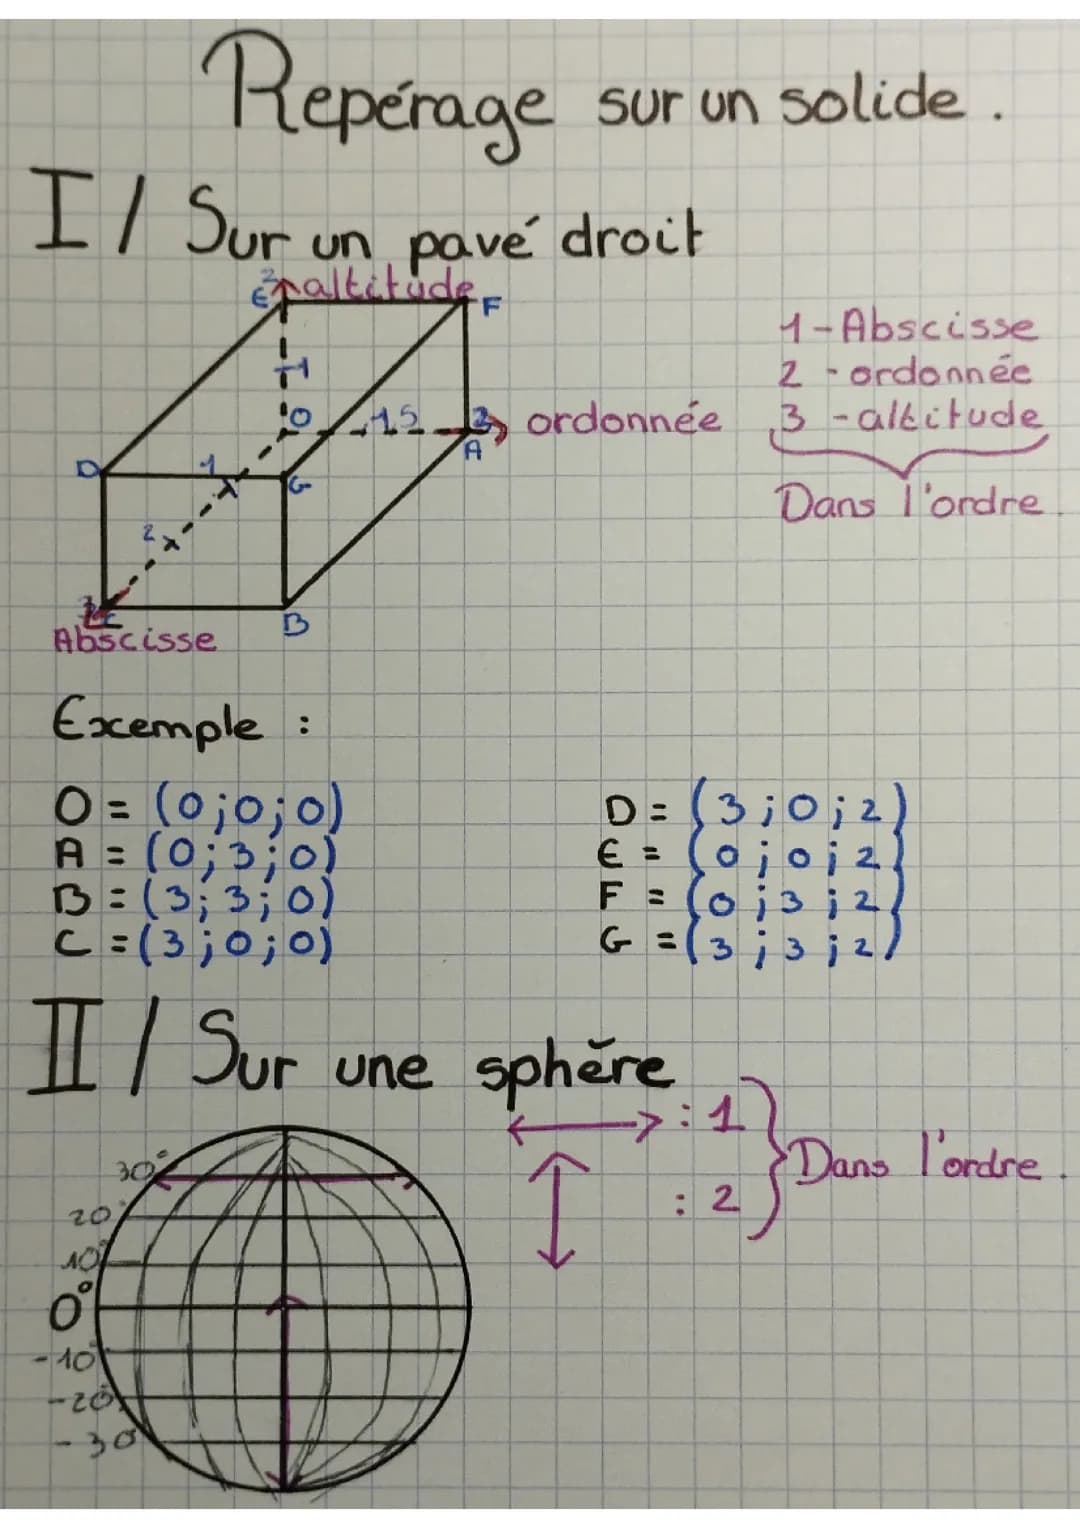 Repérage sur un solide.
I / Sur un pavé droit
2 altitude
E F
1-Abscisse
1
2 - ordonnée
O 1,5 3 ordonnée
3 - altitude
A
D 1 G
Dans l'ordre.
2
3 C B
Abscisse
Exemple :
O = (0;0;0) D = (3;0;2)
A = (0;3;0) E = (0;0;2)
B = (3;3;0) F = (0;3;2)
C = (3;0;0) G = (3;3;2)
II / Sur une sphère
: 1
30° Dans l'ordre.
: 2
20°
10°
0°
-10
-20
-30